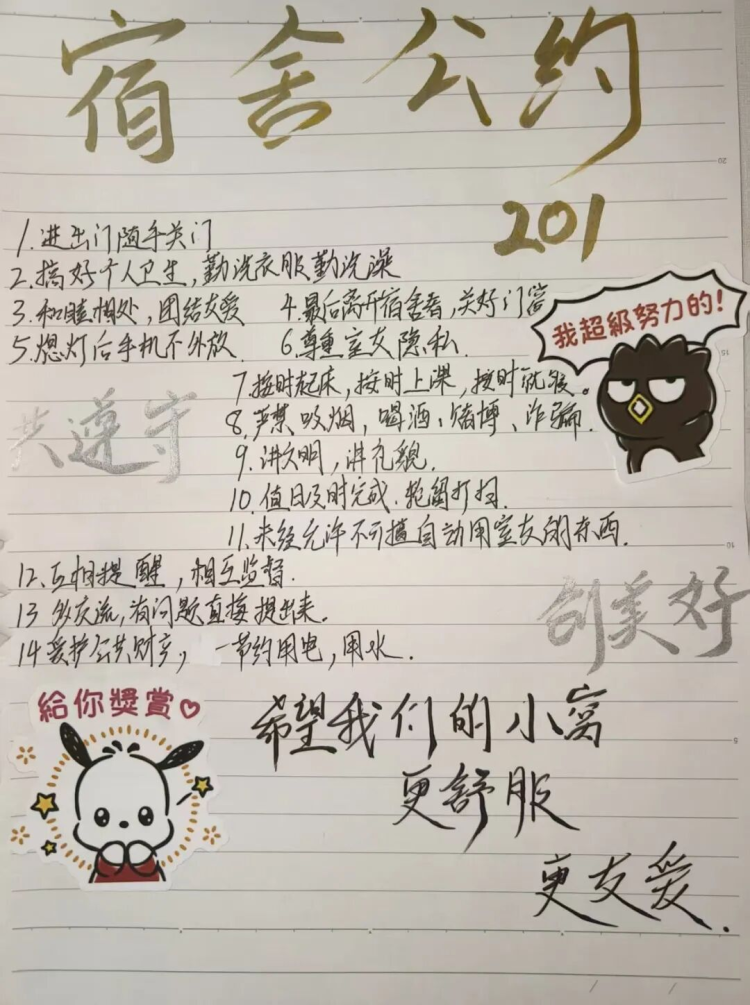 宿舍公约
201
1.进出门随手关门
2.搞好个人卫生,勤洗衣服勤洗澡
3.和睦相处,团结友爱 4.最后离开宿舍者,关好门窗
5.熄灯后手机不外放. 6.尊重室友隐私.
我超級努力的!
7.按时起床,按时上课,按时就寝。
8.严禁吸烟,喝酒、赌博、诈骗.
共遵守
9.讲文明,讲礼貌.
10.值日及时完成.轮留打扫.
11.未经允许不可擅自动用室友的东西.
12.互相提醒,相互监督.
13 多交流,有问题直接提出来.
创美好
14爱护公共财产,节约用电,用水.
給你獎賞
希望我们的小窝
更舒服
更友爱.
20
15
10
5